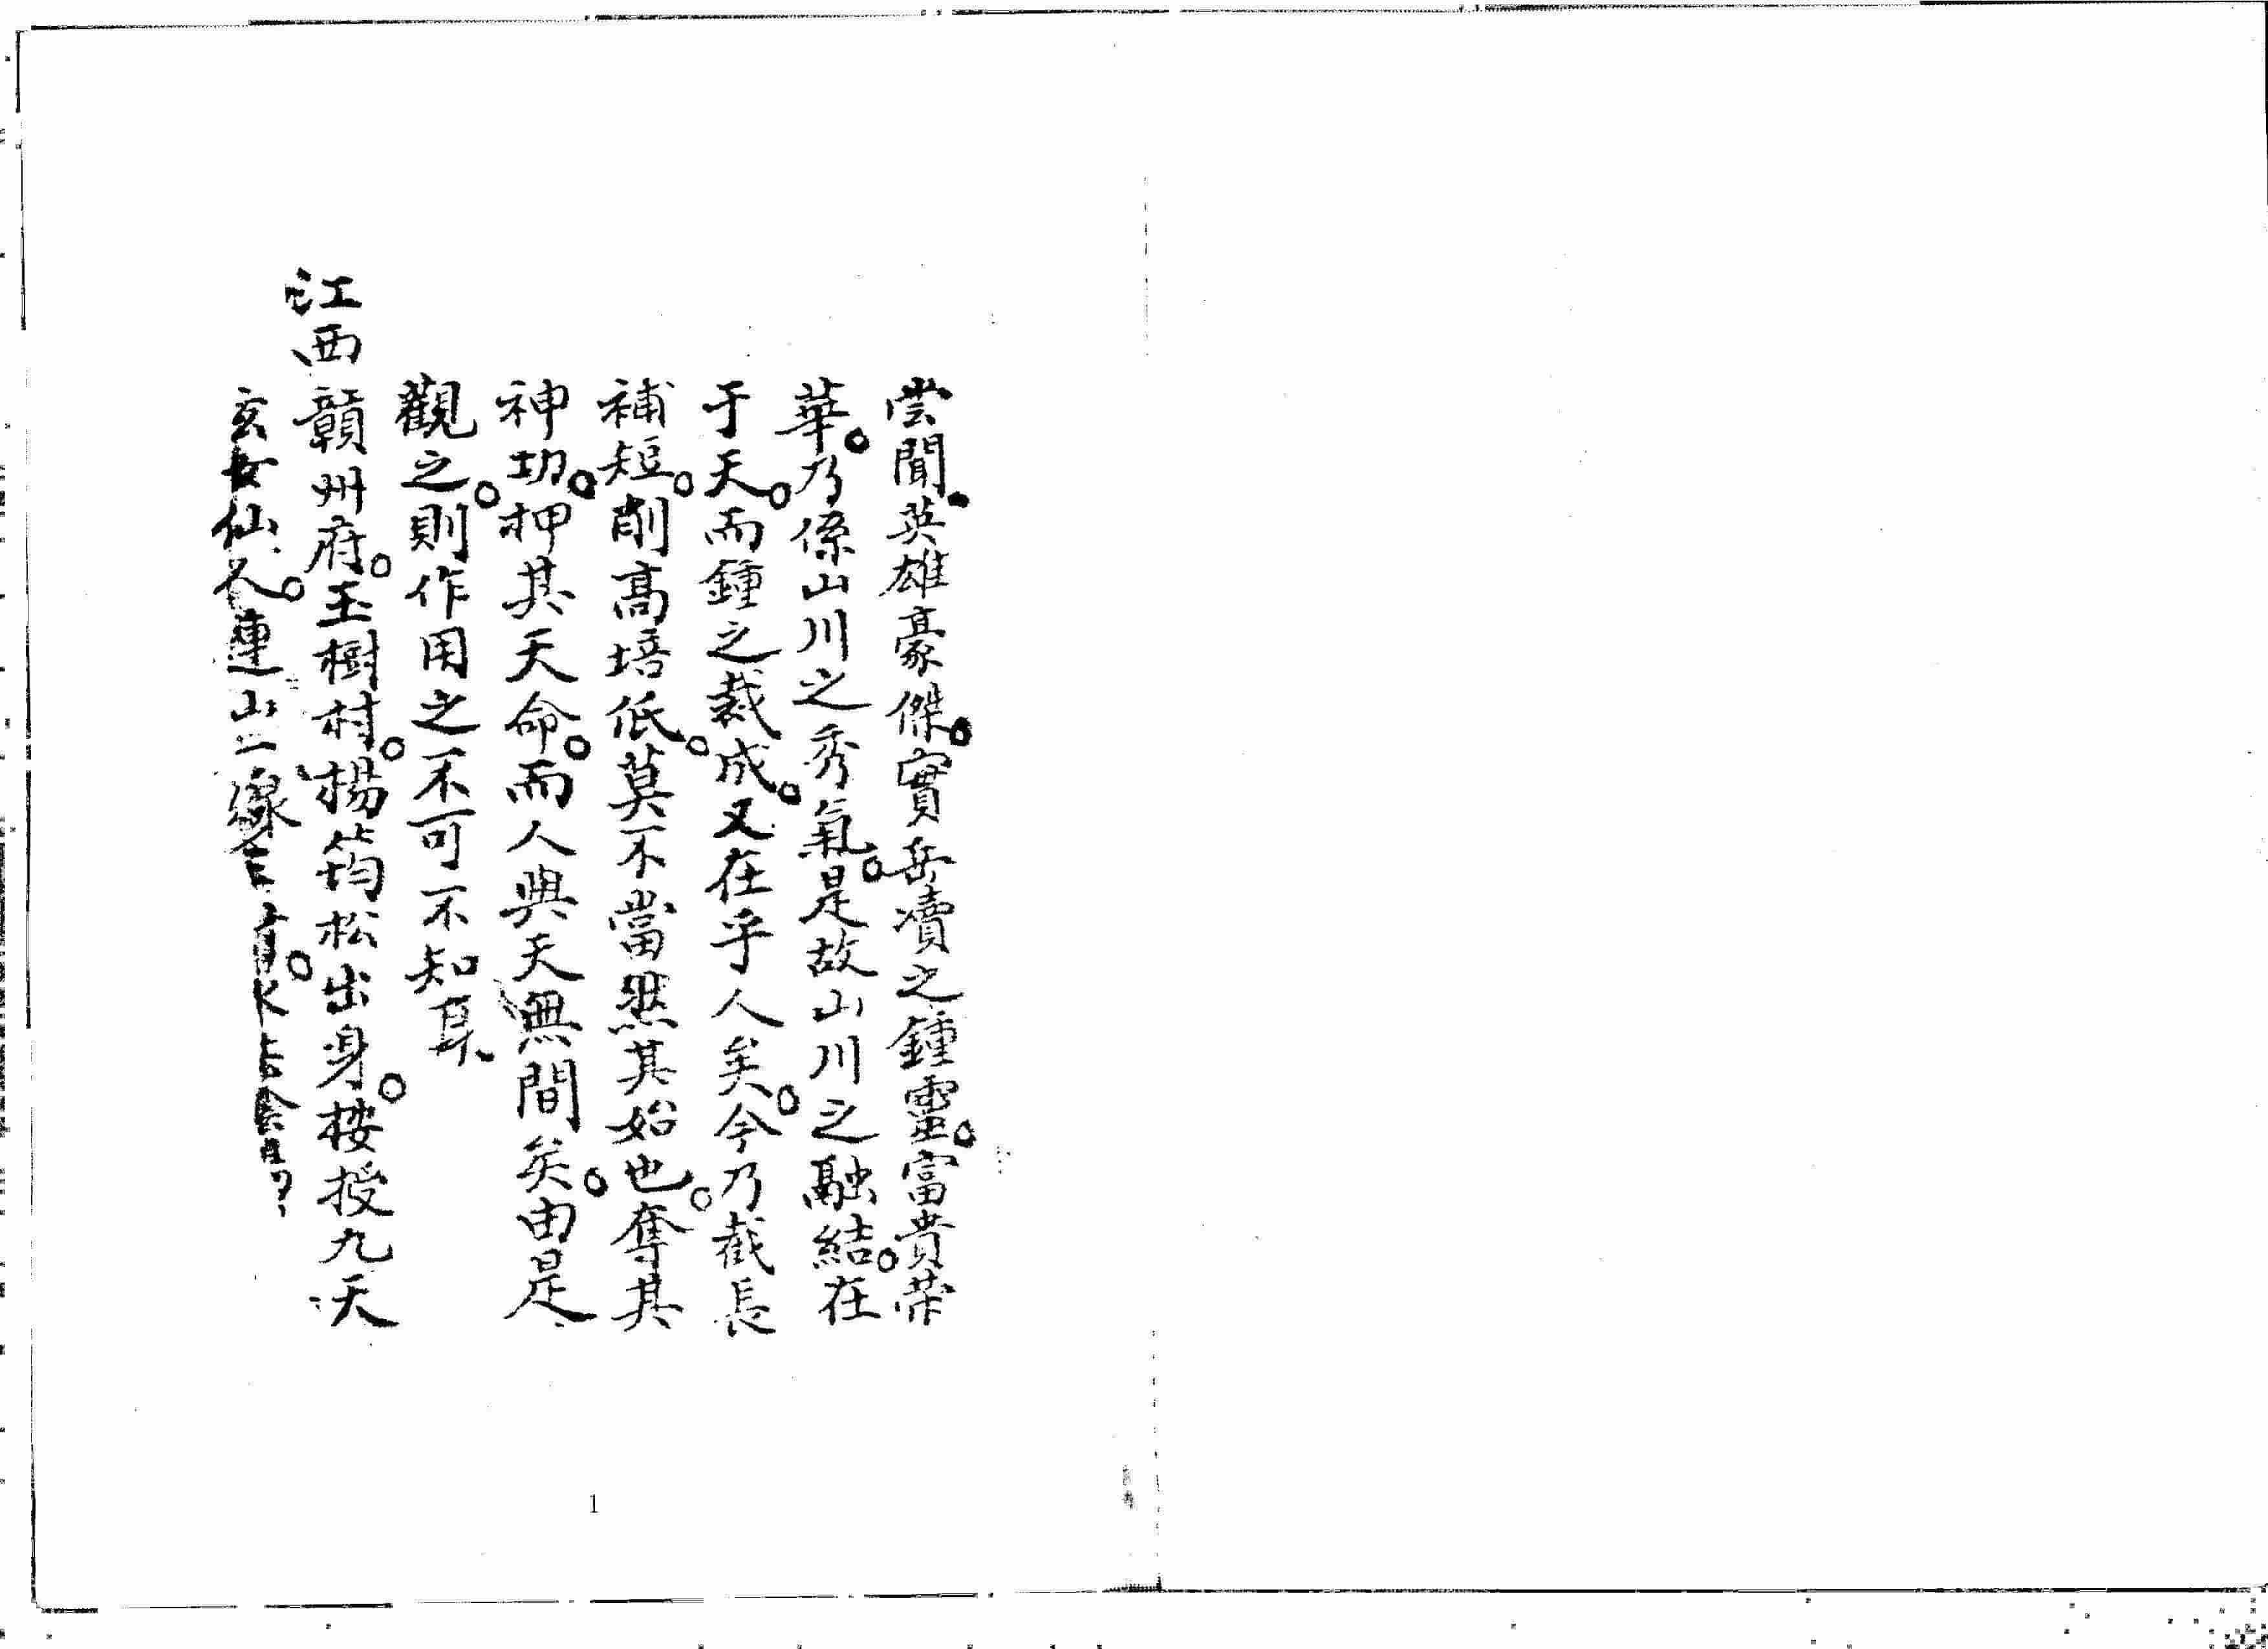 尝聞英雄豪傑。實岳瀆之鍾靈。富貴荣
華。乃係山川之秀氣。是故山川之融結。在
于天。而鍾之裁成。又在乎人矣。今乃截長
補短。削高培低。莫不當然其始也。奪其
神功。押其天命。而人與天無間矣。由是
觀之。則作用之之不可不知耳
江西贛州府。玉樹村。楊筠松出身。接授九天
玄女仙人。連山二
1